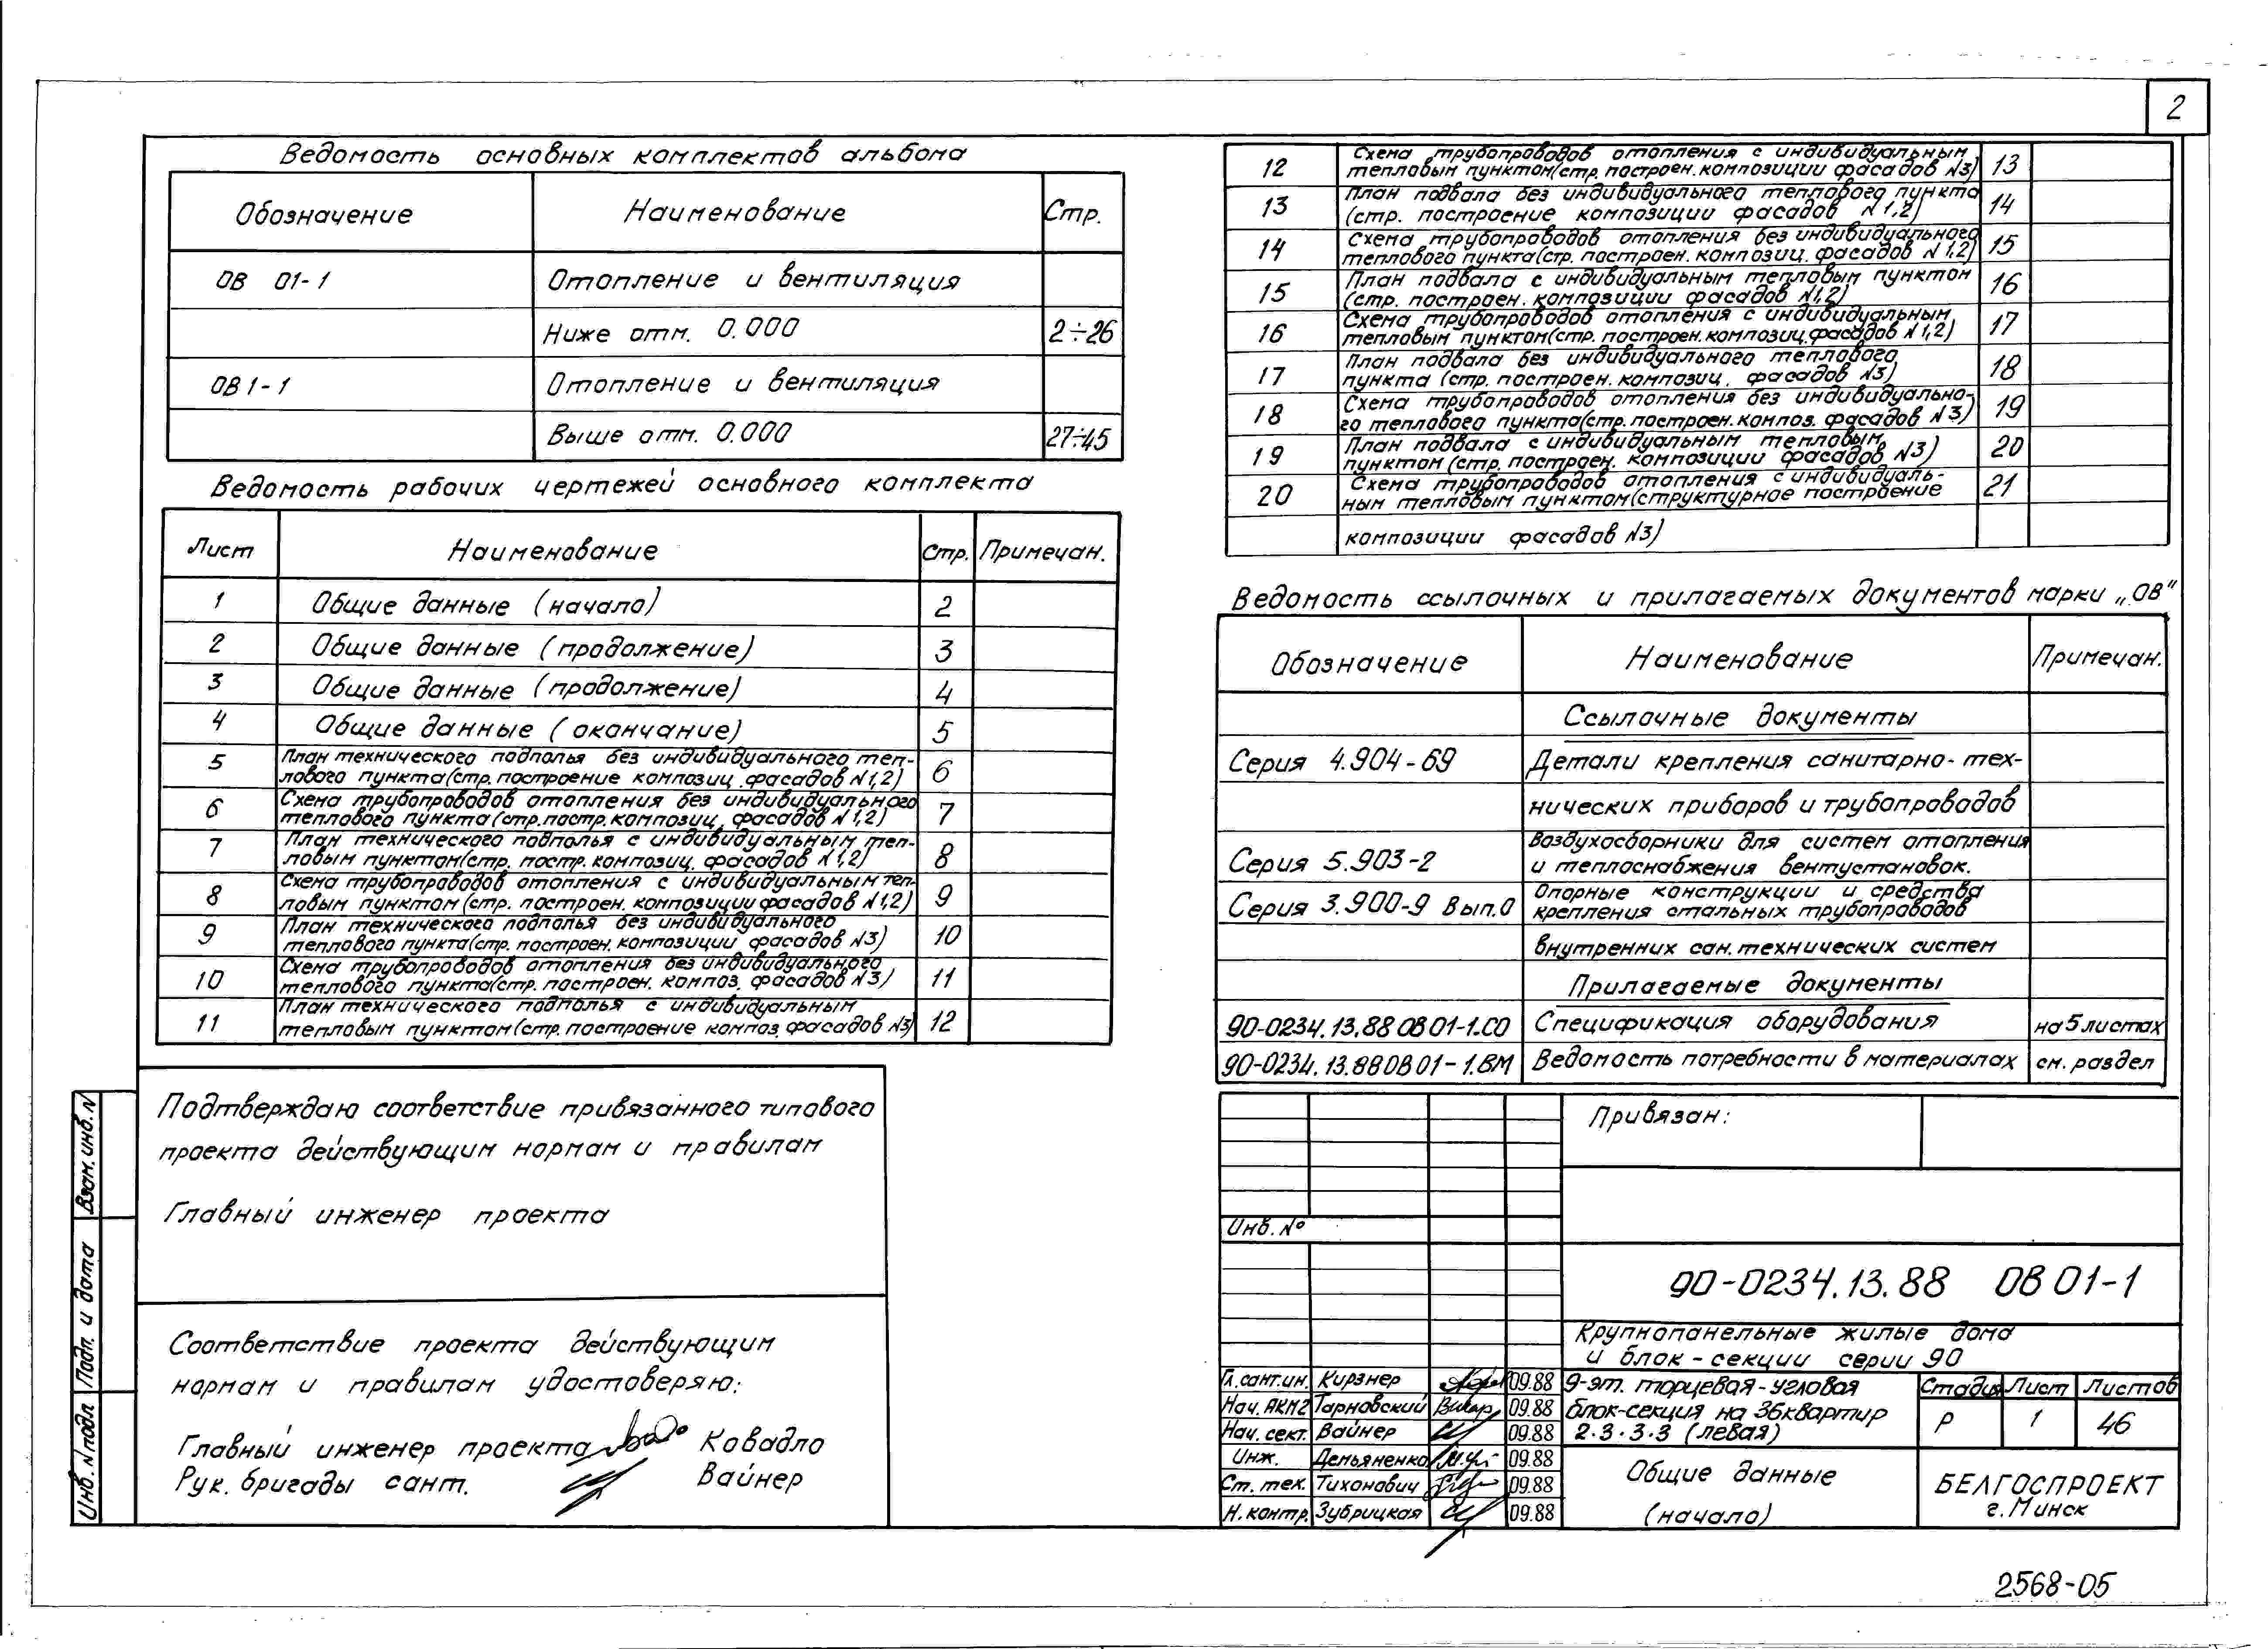 2
Ведомость основных комплектов альбома
Обозначение Наименование Стр.
ОВ 01-1 Отопление и вентиляция
Ниже отм. 0.000 2÷26
ОВ 1-1 Отопление и вентиляция
Выше отм. 0.000 27÷45
Ведомость рабочих чертежей основного комплекта
Лист Наименование Стр. Примечан.
1 Общие данные (начало) 2
2 Общие данные (продолжение) 3
3 Общие данные (продолжение) 4
4 Общие данные (окончание) 5
5 План технического подполья без индивидуального теп-
лового пункта (стр. построение композиц. фасадов N1,2) 6
6 Схема трубопроводов отопления без индивидуального
теплового пункта (стр. постр. композиц. фасадов N1,2) 7
7 План технического подполья с индивидуальным теп-
ловым пунктом (стр. постр. композиц. фасадов N1,2) 8
8 Схема трубопроводов отопления с индивидуальным теп-
ловым пунктом (стр. построен. композиции фасадов N1,2) 9
9 План технического подполья без индивидуального
теплового пункта (стр. построен. композиции фасадов N3) 10
10 Схема трубопроводов отопления без индивидуального
теплового пункта (стр. построен. композ. фасадов N3) 11
11 План технического подполья с индивидуальным
тепловым пунктом (стр. построение композ. фасадов N3) 12
12 Схема трубопроводов отопления с индивидуальным
тепловым пунктом (стр. построен. композиции фасадов N3) 13
13 План подвала без индивидуального теплового пункта
(стр. построение композиции фасадов N1,2) 14
14 Схема трубопроводов отопления без индивидуального
теплового пункта (стр. построен. композиц. фасадов N1,2) 15
15 План подвала с индивидуальным тепловым пунктом
(стр. построен. композиции фасадов N1,2) 16
16 Схема трубопроводов отопления с индивидуальным
тепловым пунктом (стр. построен. композиц. фасадов N1,2) 17
17 План подвала без индивидуального теплового
пункта (стр. построен. композиц. фасадов N3) 18
18 Схема трубопроводов отопления без индивидуально-
го теплового пункта (стр. построен. композ. фасадов N3) 19
19 План подвала с индивидуальным тепловым
пунктом (стр. построен. композиции фасадов N3) 20
20 Схема трубопроводов отопления с индивидуаль-
ным тепловым пунктом (структурное построение 21
композиции фасадов N3)
Ведомость ссылочных и прилагаемых документов марки „ОВ"
Обозначение Наименование Примечан.
Ссылочные документы
Серия 4.904-69 Детали крепления санитарно-тех-
нических приборов и трубопроводов
Воздухосборники для систем отопления
Серия 5.903-2 и теплоснабжения вентустановок.
Серия 3.900-9 Вып.0 Опорные конструкции и средства
крепления стальных трубопроводов
внутренних сан. технических систем
Прилагаемые документы
90-0234.13.88 ОВ 01-1.СО Спецификация оборудования на 5 листах
90-0234.13.88 ОВ 01-1.ВМ Ведомость потребности в материалах см. раздел
Подтверждаю соответствие привязанного типового
проекта действующим нормам и правилам
Главный инженер проекта
Соответствие проекта действующим
нормам и правилам удостоверяю:
Главный инженер проекта Ковадло
Рук. бригады сант. Вайнер
Взам. инв. N
Подп. и дата
Инв. N подл
Привязан:
Инв. №
90-0234.13.88 ОВ 01-1
Крупнопанельные жилые дома
и блок-секции серии 90
Гл. сант. ин. Кирзнер 09.88
Нач. АКМ2 Тарновский 09.88
Нач. сект. Вайнер 09.88
Инж. Демьяненко 09.88
Ст. тех. Тихонович 09.88
Н. контр. Зубрицкая 09.88
9-эт. торцевая-угловая
блок-секция на 36 квартир
2·3·3·3 (левая)
Стадия Лист Листов
Р 1 46
Общие данные
(начало)
БЕЛГОСПРОЕКТ
г. Минск
2568-05